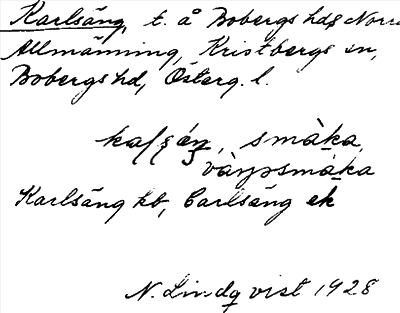 Karlsäng, t. å Bobergs hds Norra
Allmänning, Kristbergs sn,
Bobergs hd, Österg. l.
smàka,
vàrpsmàka
Karlsäng kb, Carlsäng ek
N. Lindqvist 1928